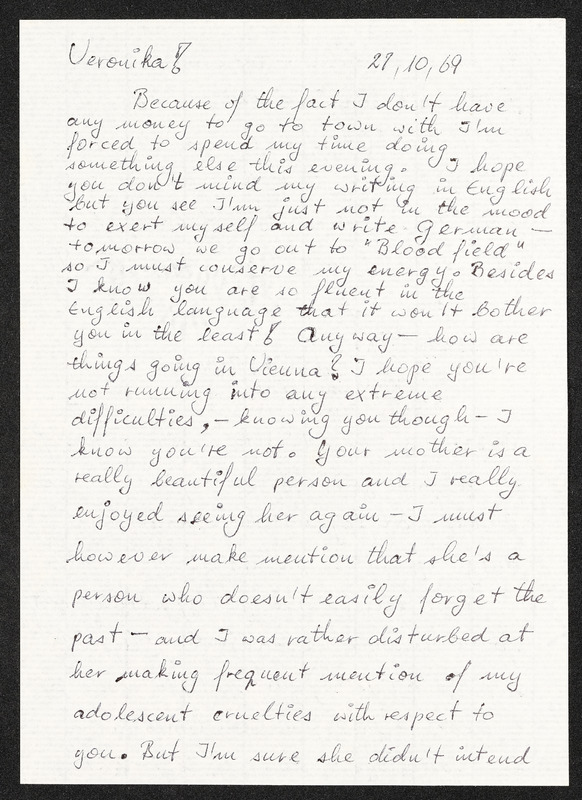 Veronika! 27,10,69
Because of the fact I don't have
any money to go to town with I'm
forced to spend my time doing
something else this evening. I hope
you don't mind my writing in English
but you see I'm just not in the mood
to exert myself and write German —
tomorrow we go out to "Blood field"
so I must conserve my energy. Besides
I know you are so fluent in the
English language that it won't bother
you in the least! Anyway — how are
things going in Vienna? I hope you're
not running into any extreme
difficulties, — knowing you though — I
know you're not. Your mother is a
really beautiful person and I really
enjoyed seeing her again — I must
however make mention that she's a
person who doesn't easily forget the
past — and I was rather disturbed at
her making frequent mention of my
adolescent cruelties with respect to
you. But I'm sure she didn't intend